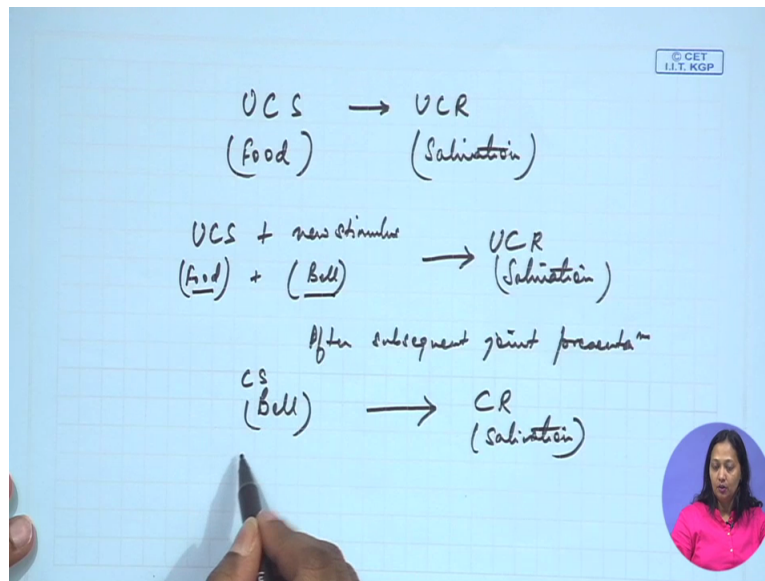 © CET
I.I.T. KGP
UCS → UCR
(Food) (Salivation)
UCS + new stimulus → UCR
(Food) + (Bell) (Salivation)
After subsequent joint presenta^n
CS
(Bell) → CR
(Salivation)